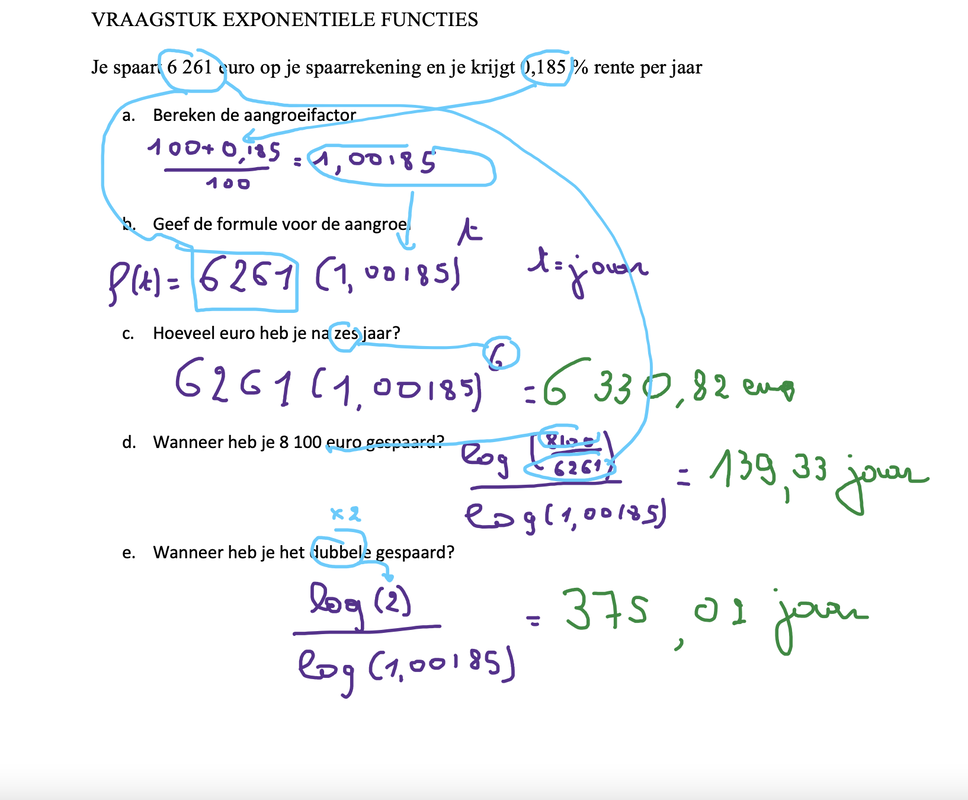 VRAAGSTUK EXPONENTIELE FUNCTIES
Je spaart 6 261 euro op je spaarrekening en je krijgt 0,185 % rente per jaar
a. Bereken de aangroeifactor
100+0,185
100
= 1,00185
b. Geef de formule voor de aangroei
f(t) = 6261 (1,00185)^t t = jaar
c. Hoeveel euro heb je na zes jaar?
6261 (1,00185)^6 = 6 330,82 euro
d. Wanneer heb je 8 100 euro gespaard?
log (8100
6261)
log(1,00185)
= 139,33 jaar
x2
e. Wanneer heb je het dubbele gespaard?
log(2)
log(1,00185)
= 375,01 jaar